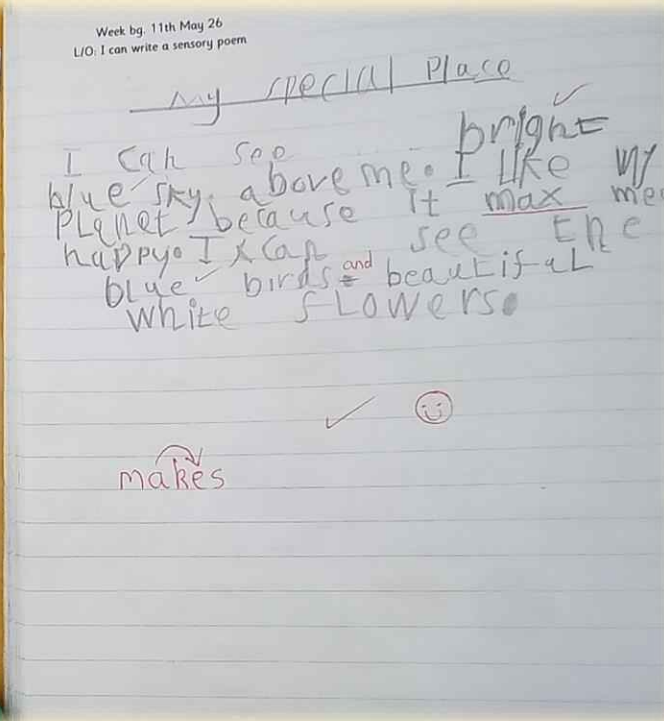 Week bg. 11th May 26
L/O: I can write a sensory poem
My special Place
I can see bright
blue sky. above me. I like my
Planet because it max me
happy. I can see the
blue birds and beautiful
white flowers.
makes